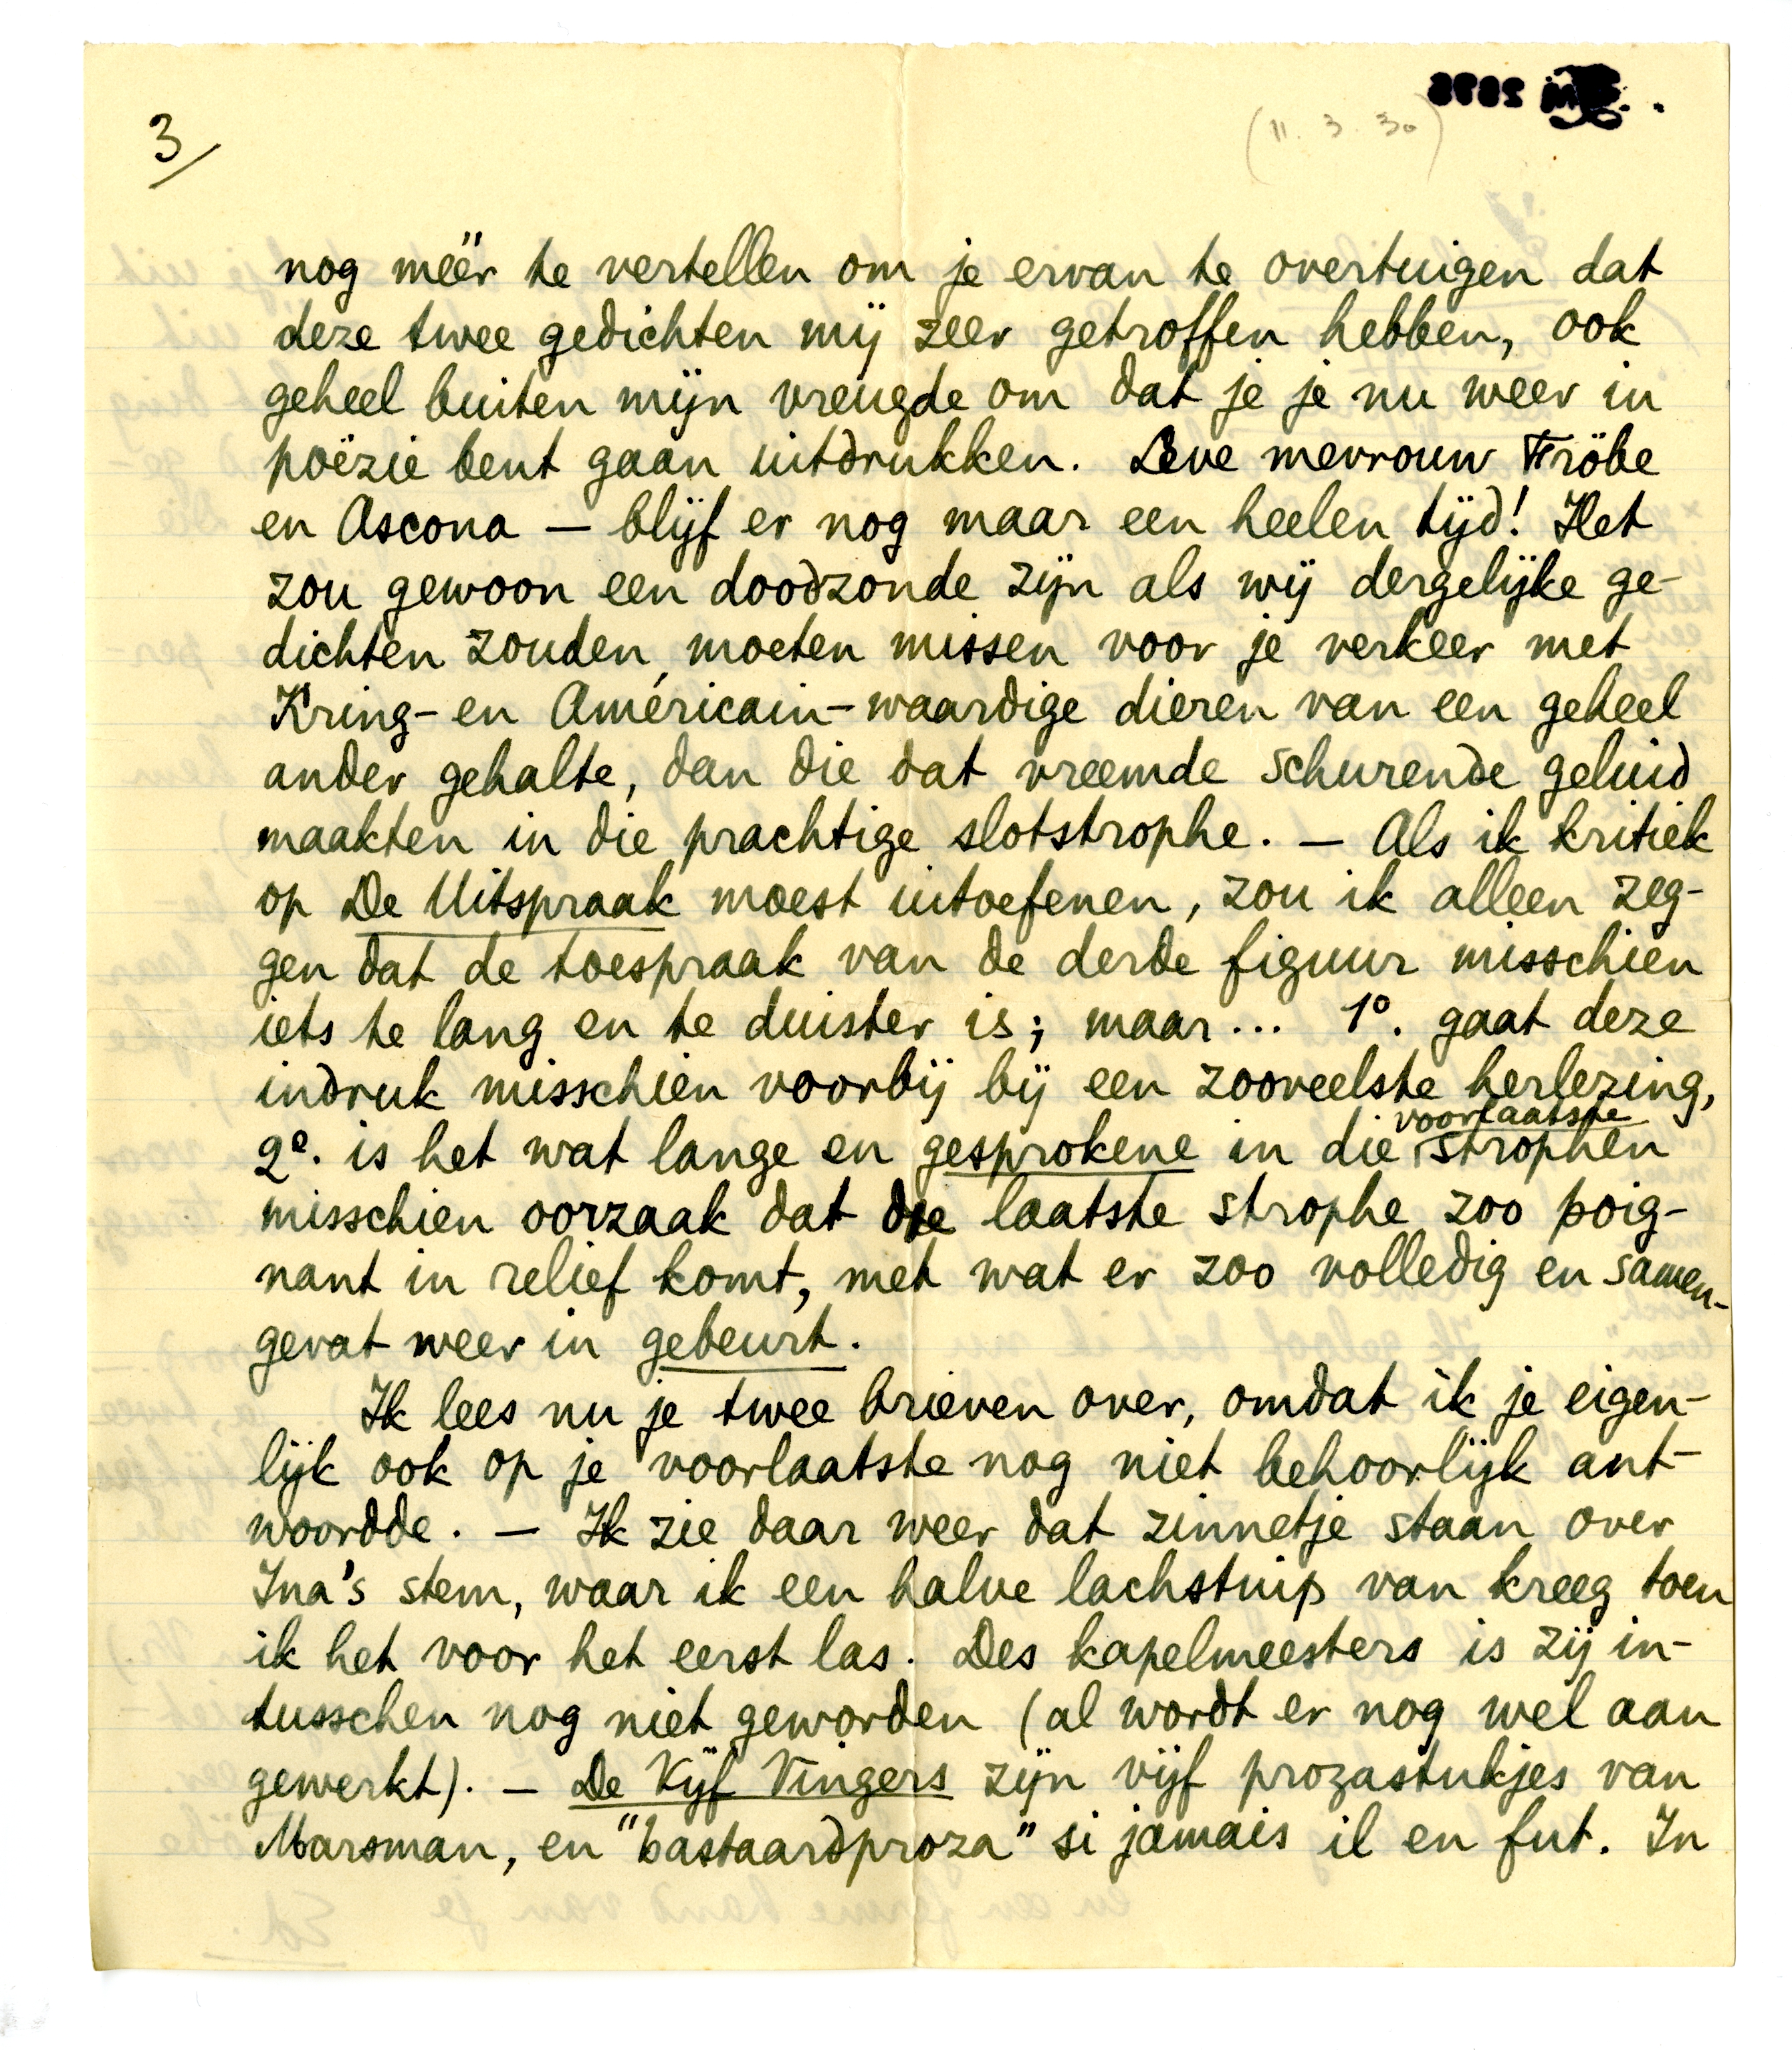 3/
(11. 3. 30)
nog méér te vertellen om je ervan te overtuigen dat
deze twee gedichten mij zeer getroffen hebben, ook
geheel buiten mijn vreugde om dat je je nu weer in
poëzie bent gaan uitdrukken. Leve mevrouw Fröbe
en Ascona — blijf er nog maar een heelen tijd! Het
zou gewoon een doodzonde zijn als wij dergelijke ge-
dichten zouden moeten missen voor je verkeer met
Kring- en Américain-waardige dieren van een geheel
ander gehalte, dan die dat vreemde schurende geluid
maakten in die prachtige slotstrophe. — Als ik kritiek
op De Uitspraak moest uitoefenen, zou ik alleen zeg-
gen dat de toespraak van de derde figuur misschien
iets te lang en te duister is; maar... 1º. gaat deze
indruk misschien voorbij bij een zooveelste herlezing,
voorlaatste
2º. is het wat lange en gesprokene in die strophen
misschien oorzaak dat die laatste strophe zoo poig-
nant in relief komt, met wat er zoo volledig en samen-
gevat weer in gebeurt.
Ik lees nu je twee brieven over, omdat ik je eigen-
lijk ook op je voorlaatste nog niet behoorlijk ant-
woordde. — Ik zie daar weer dat zinnetje staan over
Ina's stem, waar ik een halve lachstuip van kreeg toen
ik het voor het eerst las. Des kapelmeesters is zij in-
tusschen nog niet geworden (al wordt er nog wel aan
gewerkt). — De Vijf Vingers zijn vijf prozastukjes van
Marsman, en "bastaardproza" si jamais il en fut. In